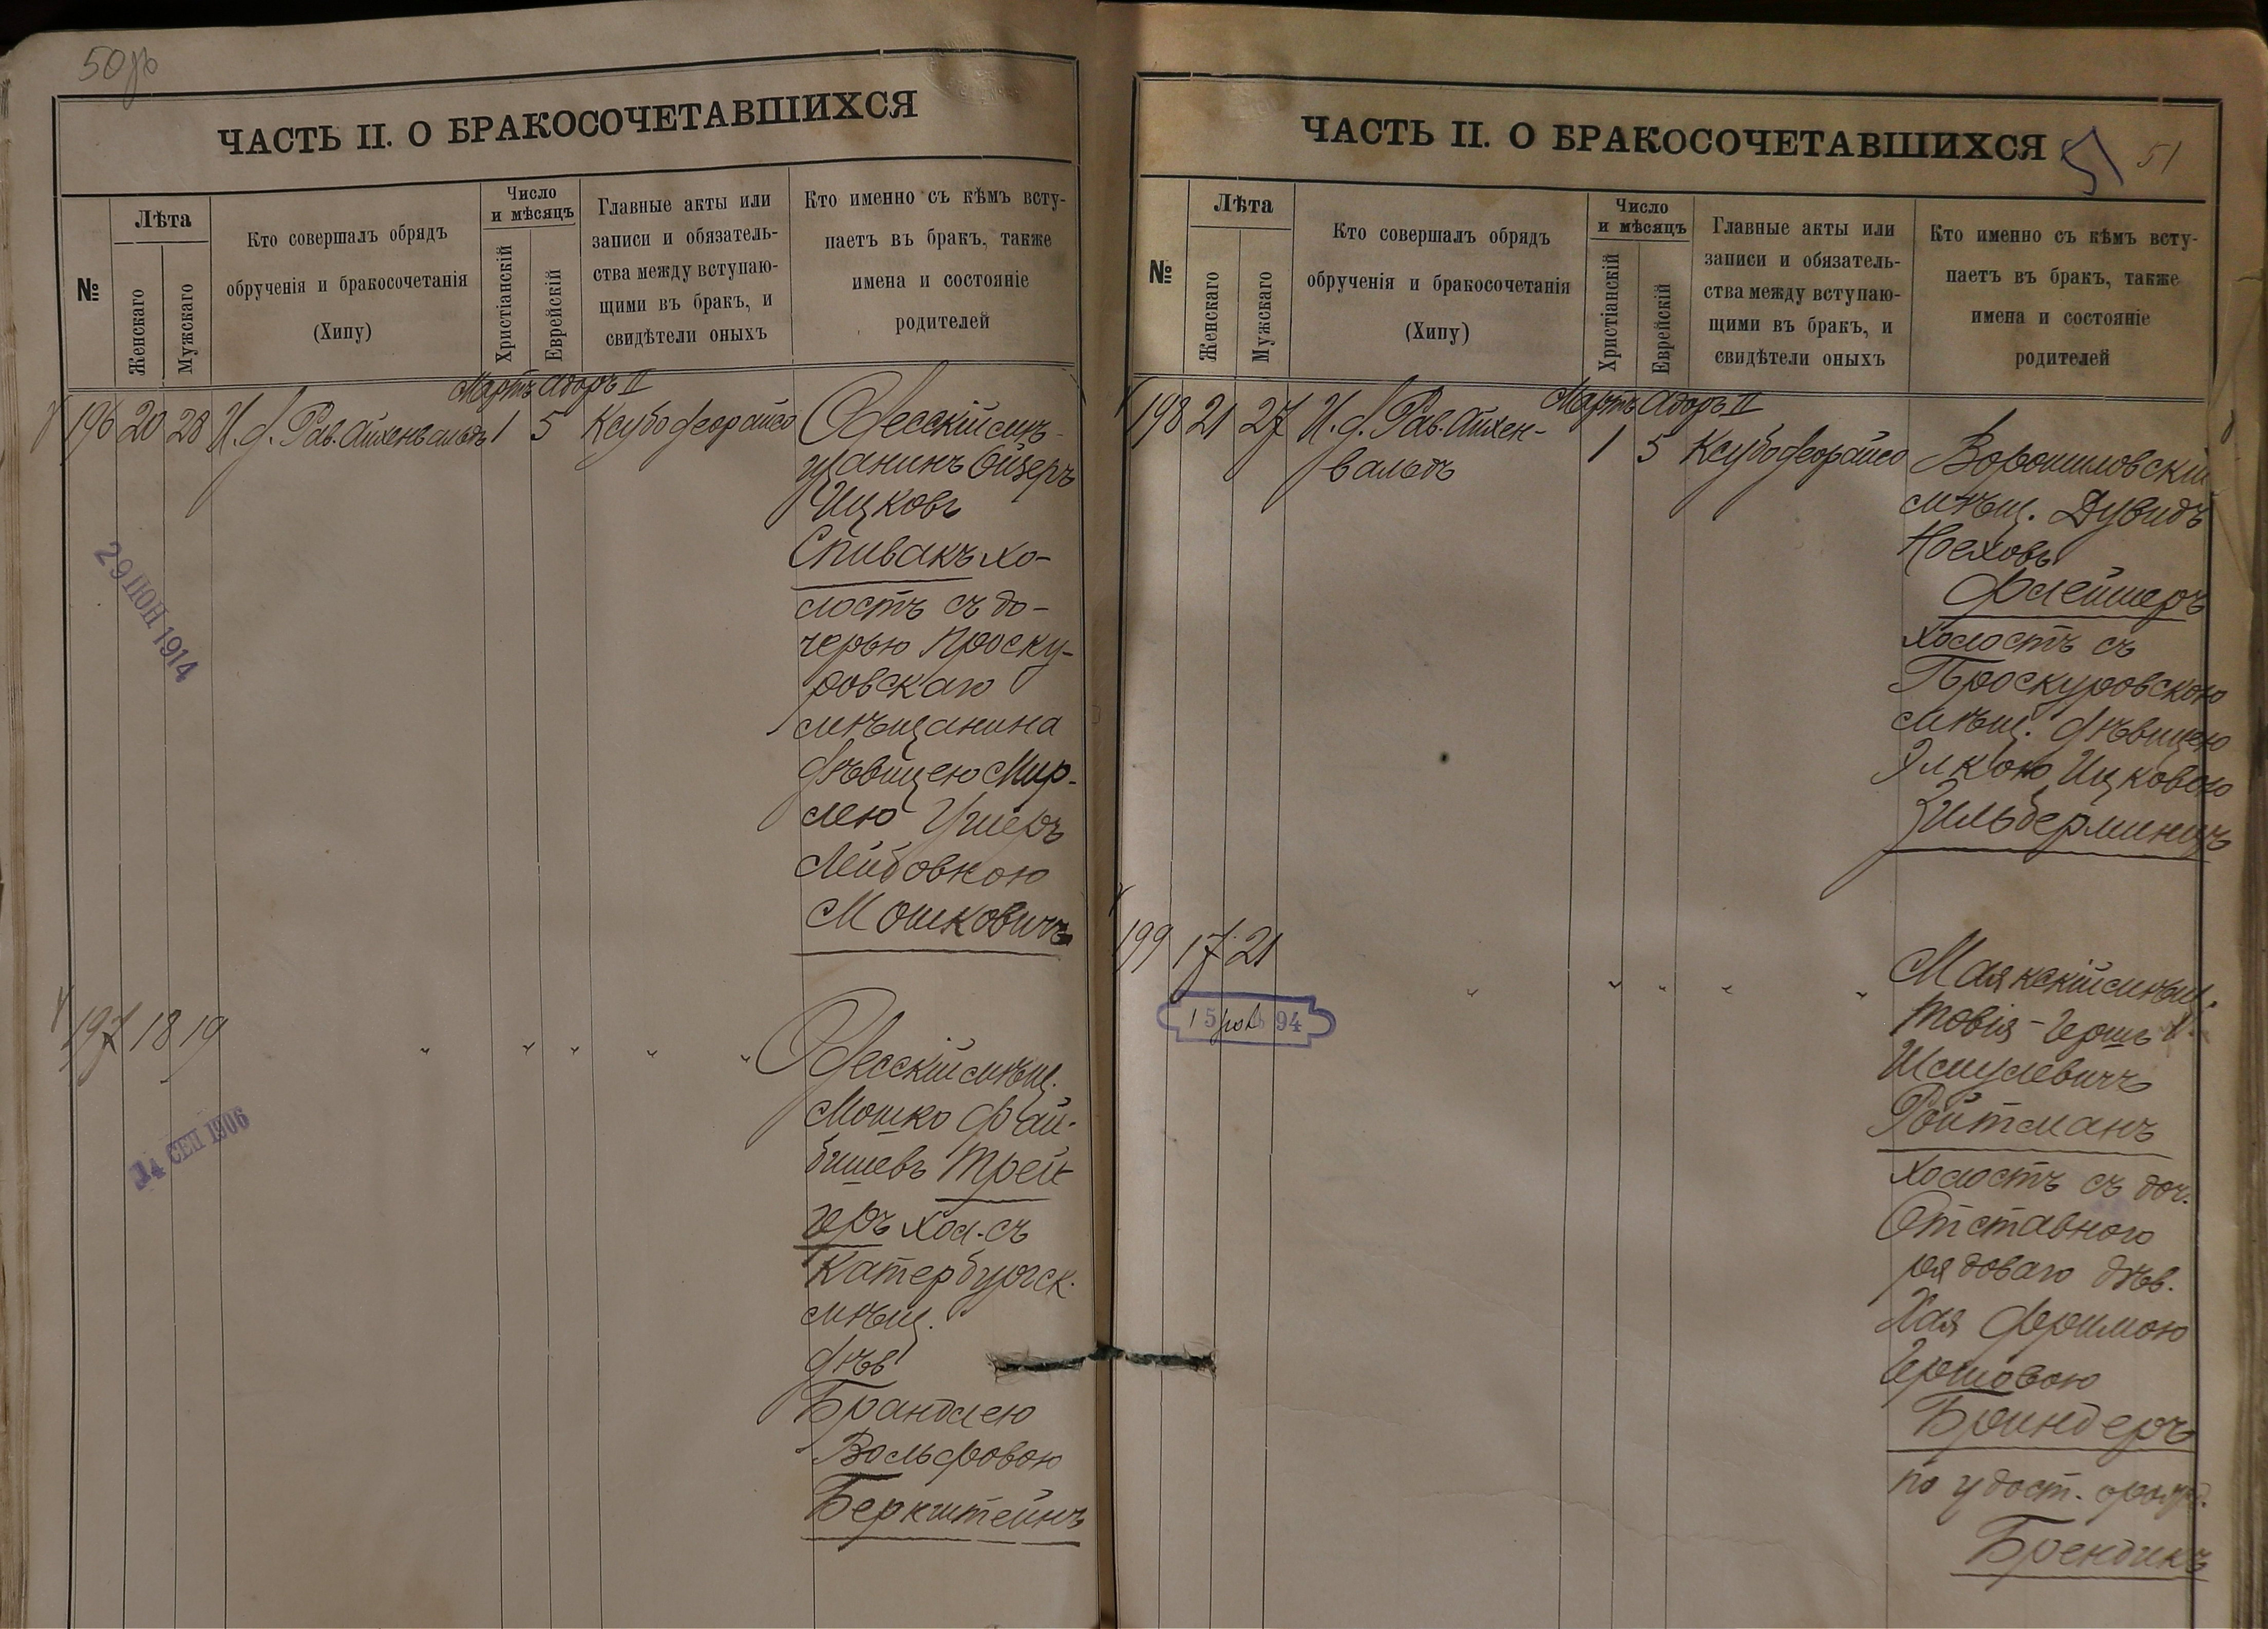 50
ЧАСТЬ II. О БРАКОСОЧЕТАВШИХСЯ
№
Лѣта
Женскаго
Мужскаго
Кто совершалъ обрядъ
обрученія и бракосочетанія
(Хипу)
Число
и мѣсяцъ
Христіанскій
Еврейскій
Главные акты или
записи и обязатель-
ства между вступаю-
щими въ бракъ, и
свидѣтели оныхъ
Кто именно съ кѣмъ всту-
паетъ въ бракъ, также
имена и состояніе
родителей
Мартъ Адоръ II
196 20 28 И. д. Рав. Айхенвальдъ 1 5 Ксубо деорайсо
Одесскій мѣ-
щанинъ Ойзеръ
Ицковъ
Спивакъ хо-
лостъ съ до-
черью Проску-
ровскаго
мѣщанина
дѣвицею Мир-
лею Ушеръ
Лейбовною
Мошковичъ
29 ІЮН 1914
197 18 19 " " " " "
Одесскій мѣщ.
Мошко Фай-
бишевъ Трей-
геръ хол. съ
Катербургск.
мѣщ.
дѣв
Брандлею
Вольфовою
Беркштейнъ
14 СЕП 1906
ЧАСТЬ II. О БРАКОСОЧЕТАВШИХСЯ
51 51
№
Лѣта
Женскаго
Мужскаго
Кто совершалъ обрядъ
обрученія и бракосочетанія
(Хипу)
Число
и мѣсяцъ
Христіанскій
Еврейскій
Главные акты или
записи и обязатель-
ства между вступаю-
щими въ бракъ, и
свидѣтели оныхъ
Кто именно съ кѣмъ всту-
паетъ въ бракъ, также
имена и состояніе
родителей
Мартъ Адоръ II
198 21 27 И. д. Рав. Айхен-
вальдъ
1 5 Ксубо деорайсо
Ворошиловскій
мѣщ. Дувидъ
Ноеховъ
Флейшеръ
холостъ съ
Проскуровскою
мѣщ. дѣвицею
Элкою Ицковою
Зильберминцъ
199 17 21 " " " " "
15 94
Маякскій мѣщ.
Товія-Гершъ
Шмулевичъ
Ройтманъ
холостъ съ доч.
Отставного
рядоваго дѣв.
Хая Фримою
Гершовою
Бриндеръ
по удост.
Брендикъ